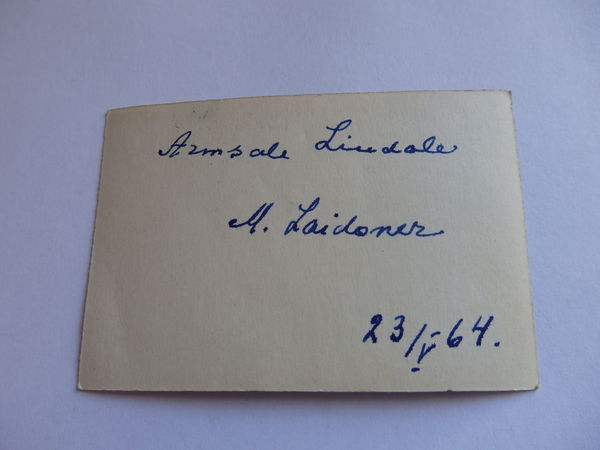 Armsale Lindale
M. Laidoner
23/V 64.